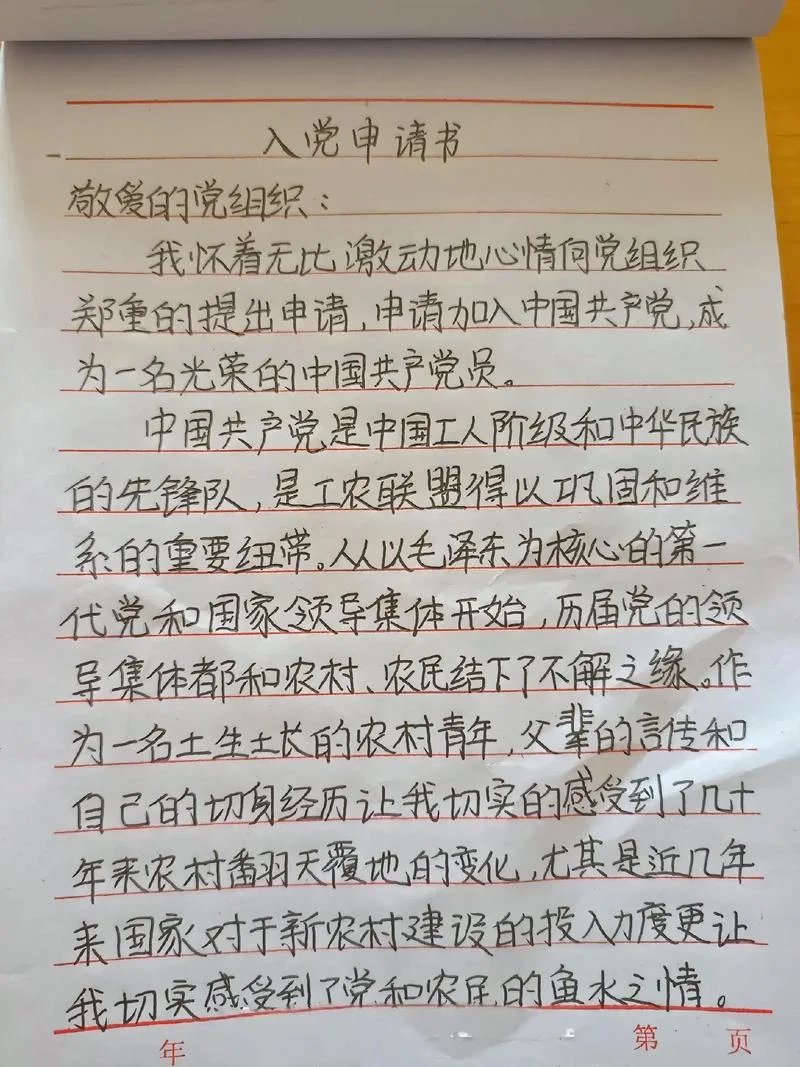 入党申请书
敬爱的党组织：
我怀着无比激动地心情向党组织
郑重的提出申请，申请加入中国共产党，成
为一名光荣的中国共产党员。
中国共产党是中国工人阶级和中华民族
的先锋队，是工农联盟得以巩固和维
系的重要纽带。从以毛泽东为核心的第一
代党和国家领导集体开始，历届党的领
导集体都和农村、农民结下了不解之缘。作
为一名土生土长的农村青年，父辈的言传和
自己的切身经历让我切实的感受到了几十
年来农村翻天覆地的变化，尤其是近几年
来国家对于新农村建设的投入力度更让
我切实感受到了党和农民的鱼水之情。
年 第 页